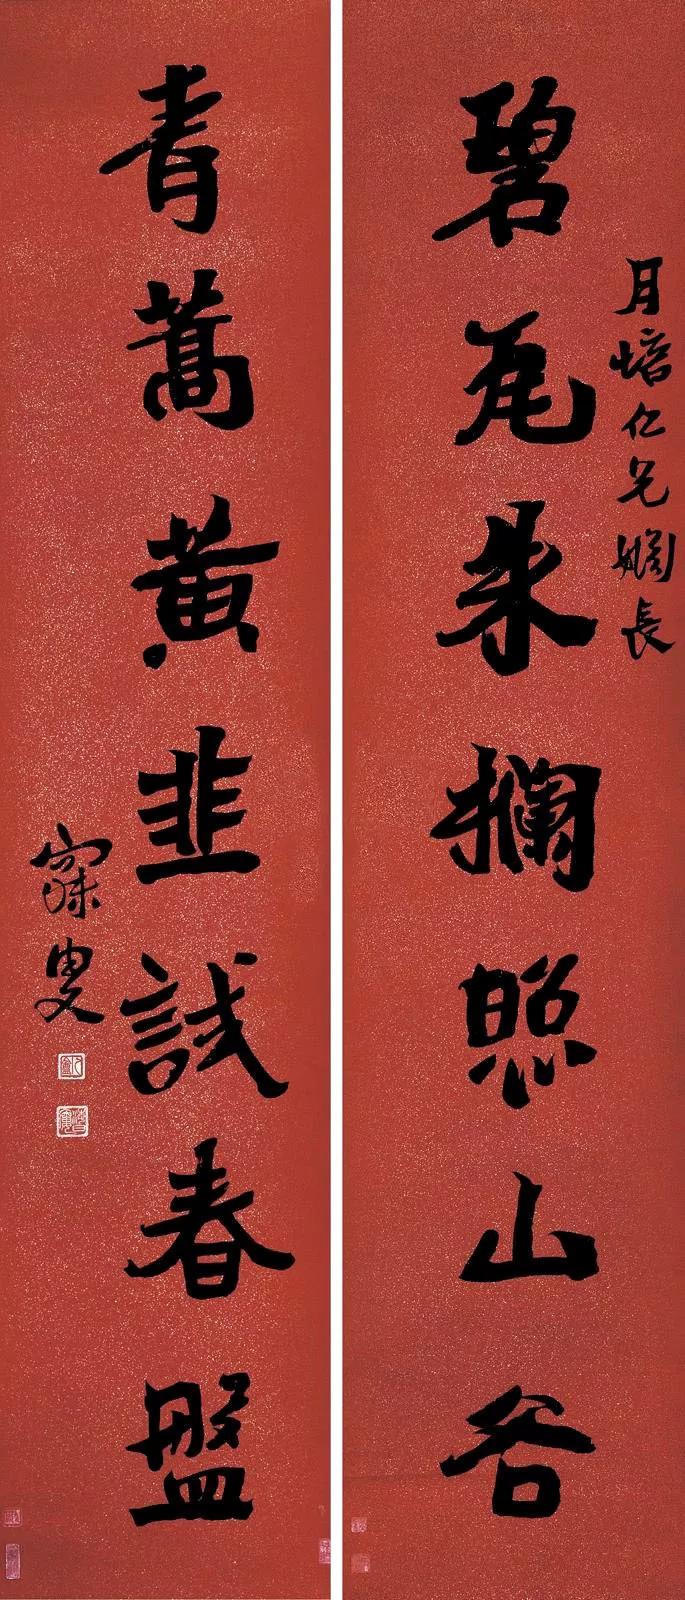 月㟝仁兄姻長
碧瓦朱欄照山谷
青蒿黃韭試春盤
寐叟